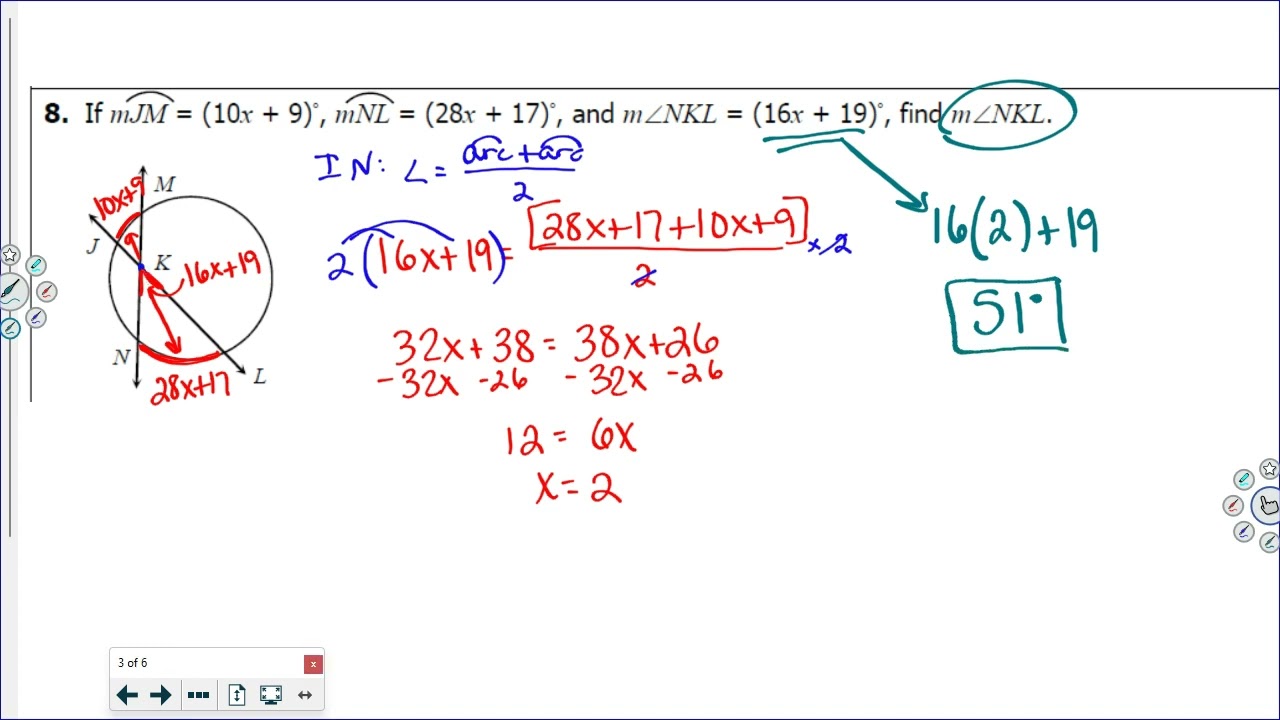 8. If mJM = (10x + 9)°, mNL = (28x + 17)°, and m∠NKL = (16x + 19)°, find m∠NKL.
IN: ∠ = arc + arc
2
10x+9
M
J
K
16x+19
N
28x+17
L
2(16x+19) = [28x+17+10x+9] x 2
2
32x+38 = 38x+26
-32x -26 -32x -26
12 = 6x
x = 2
16(2)+19
51°
3 of 6
x